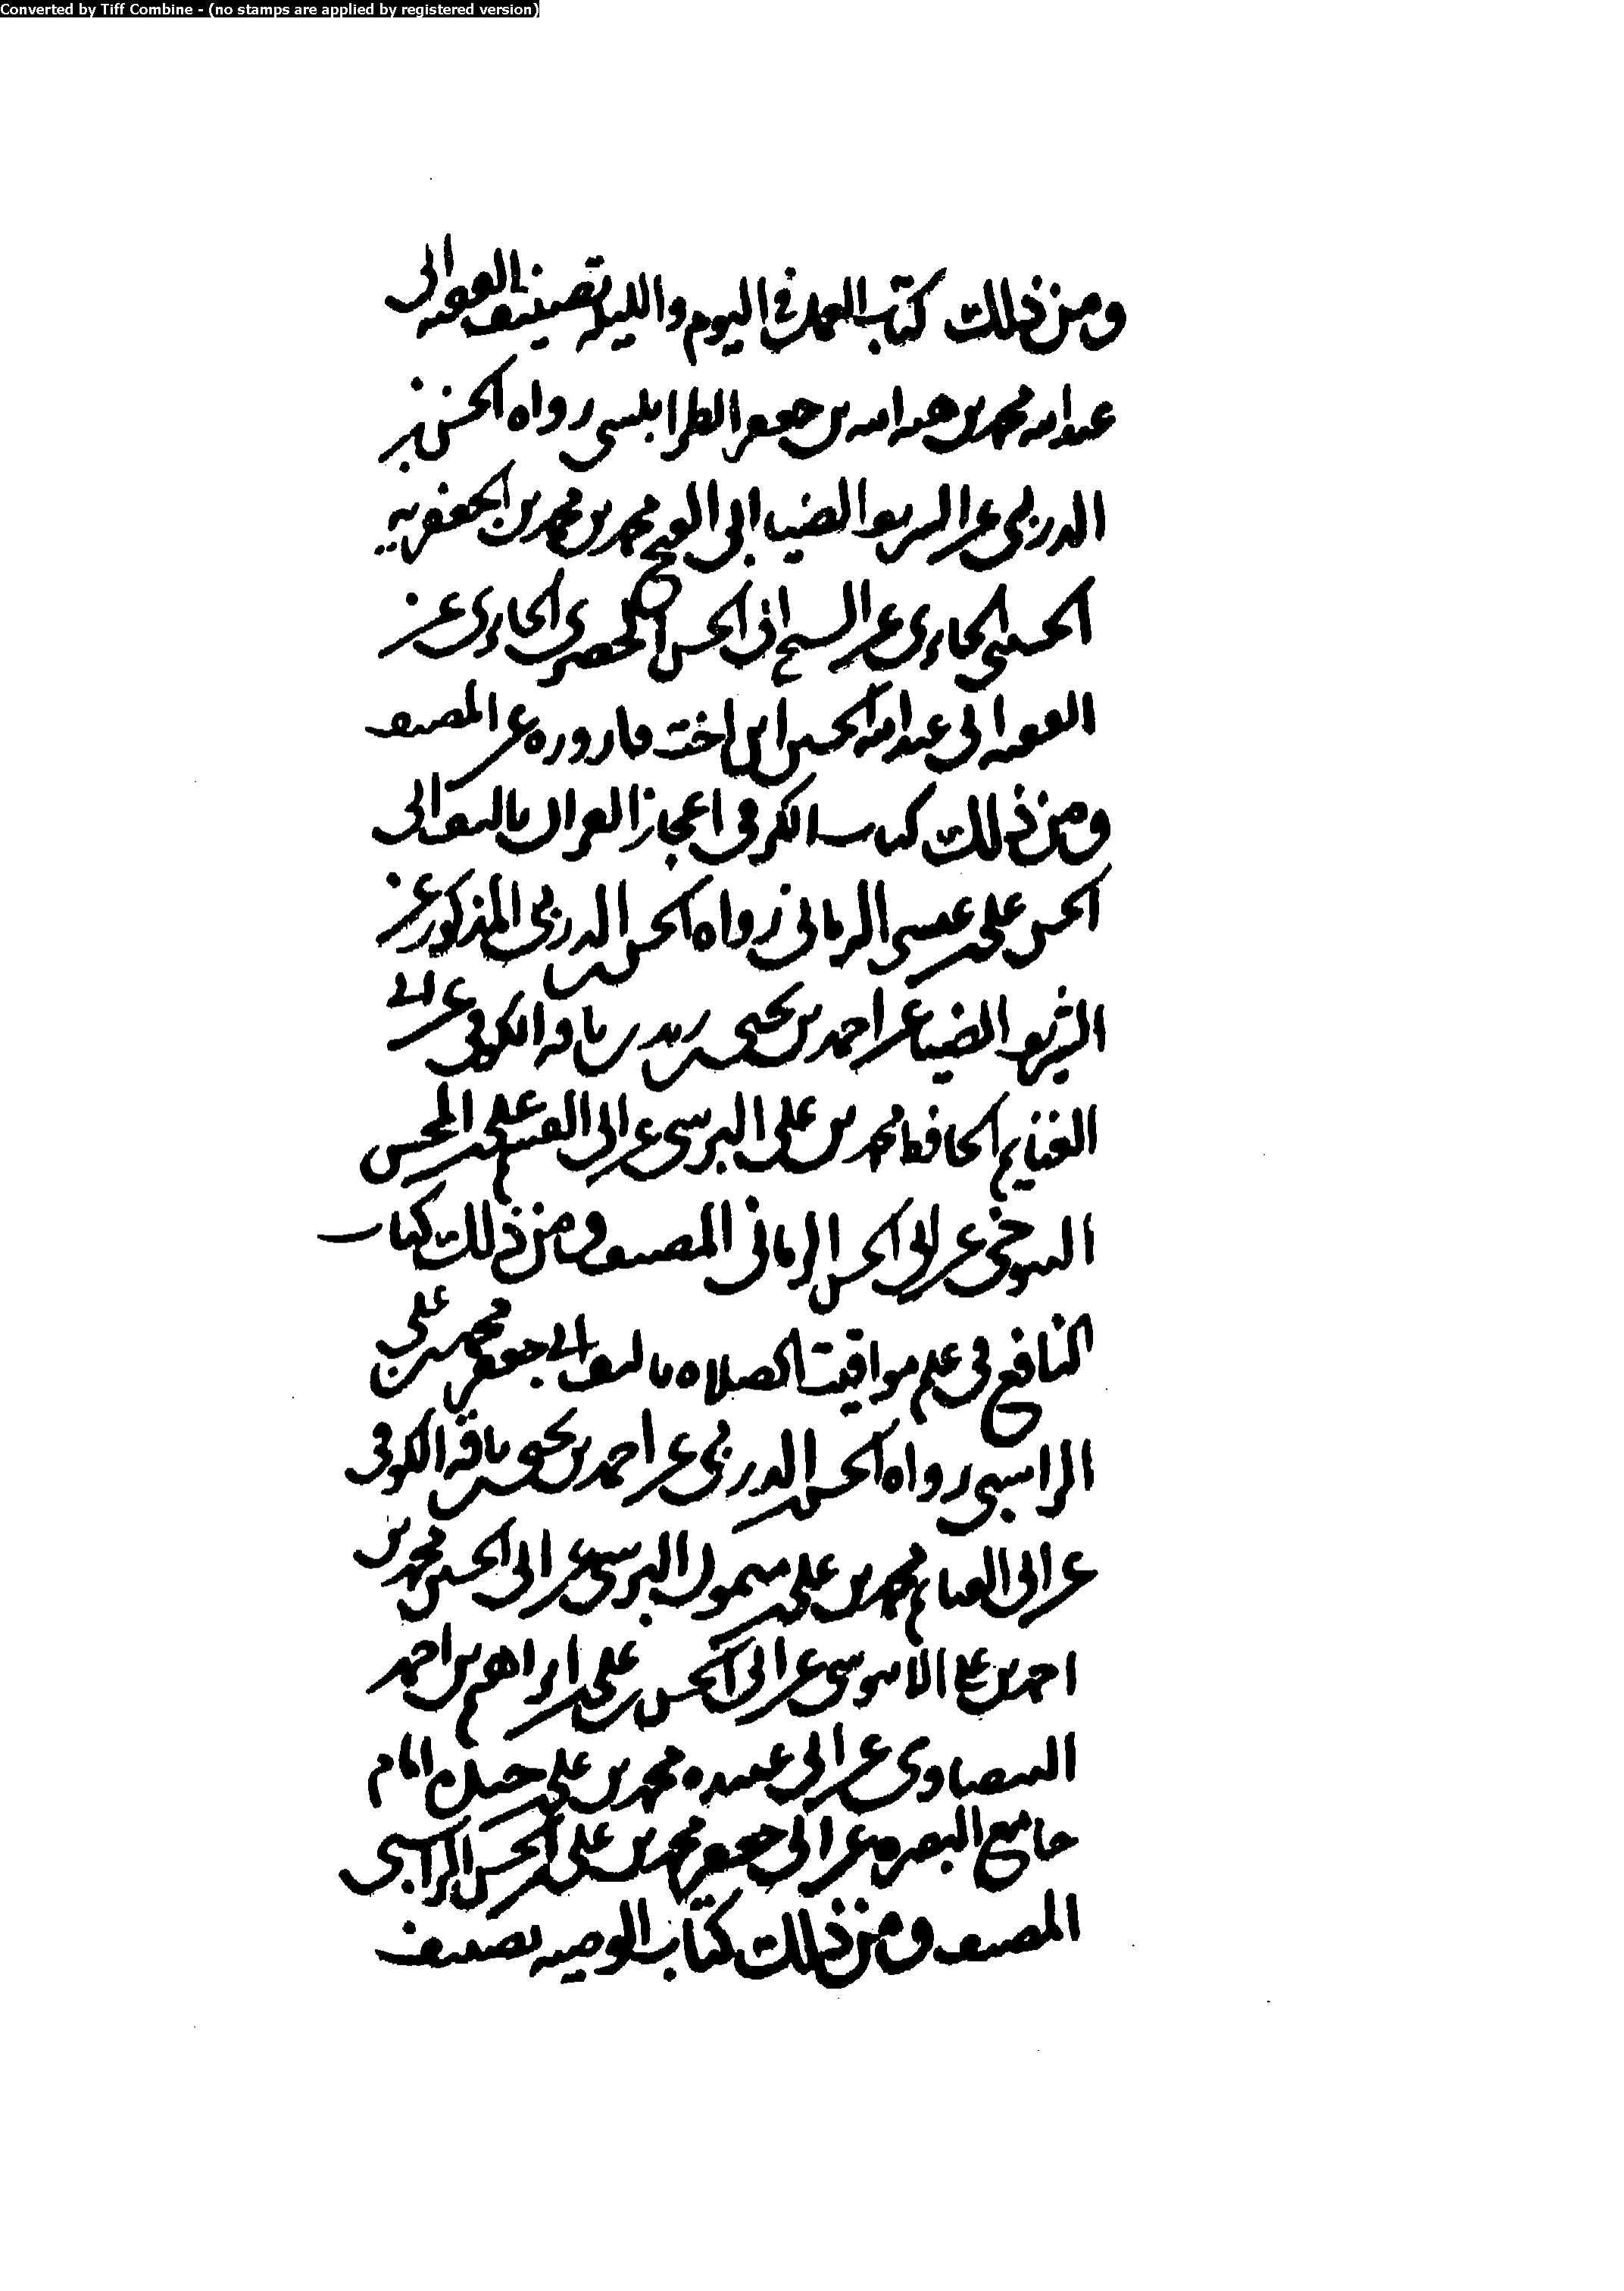 Converted by Tiff Combine - (no stamps are applied by registered version)
ومن ذلك كتاب العمل في اليوم والليله تصنيف الفقيه ابى
عبد الله محمد بن هبه الله بن جعفر الطرابلسي رواه الحسن بن
الدربي عن الشريف الضيا ابى الفتح محمد بن محمد بن الجعفريه
الحسيني الحايري عن الشيخ ابى الحسن الحايري عن
الفقيه ابى عبد الله الحسين ابن اخت قاروره عن المصنف
ومن ذلك كتاب النكت في اعجاز القران تاليف ابى
الحسن على بن عيسى الرماني رواه الحسن بن الدربي المذكور عن
الشريف الضيا عن احمد بن يحيى بن زيد بن ناقه الكوفي عن ابى
الغنايم الحافظ محمد بن على النرسي عن ابى القسم على بن المحسن
التنوخي عن ابى الحسن الرماني المصنف ومن ذلك كتاب
النافع في علم مواقيت الصلاه تاليف ابى جعفر محمد بن على
الراسبي رواه الحسن بن الدربي عن احمد بن يحيى بن ناقه الكوفي
عن ابى الغنايم محمد بن على بن ميمون النرسي عن ابى الحسن محمد بن
احمد بن على عن ابى الحسن على بن ابراهيم بن احمد
عن ابى محمد بن على بن امام
جامع البصره عن ابى جعفر محمد بن على بن الحسن الراسبي
المصنف ومن ذلك كتاب الوصيه تصنيف